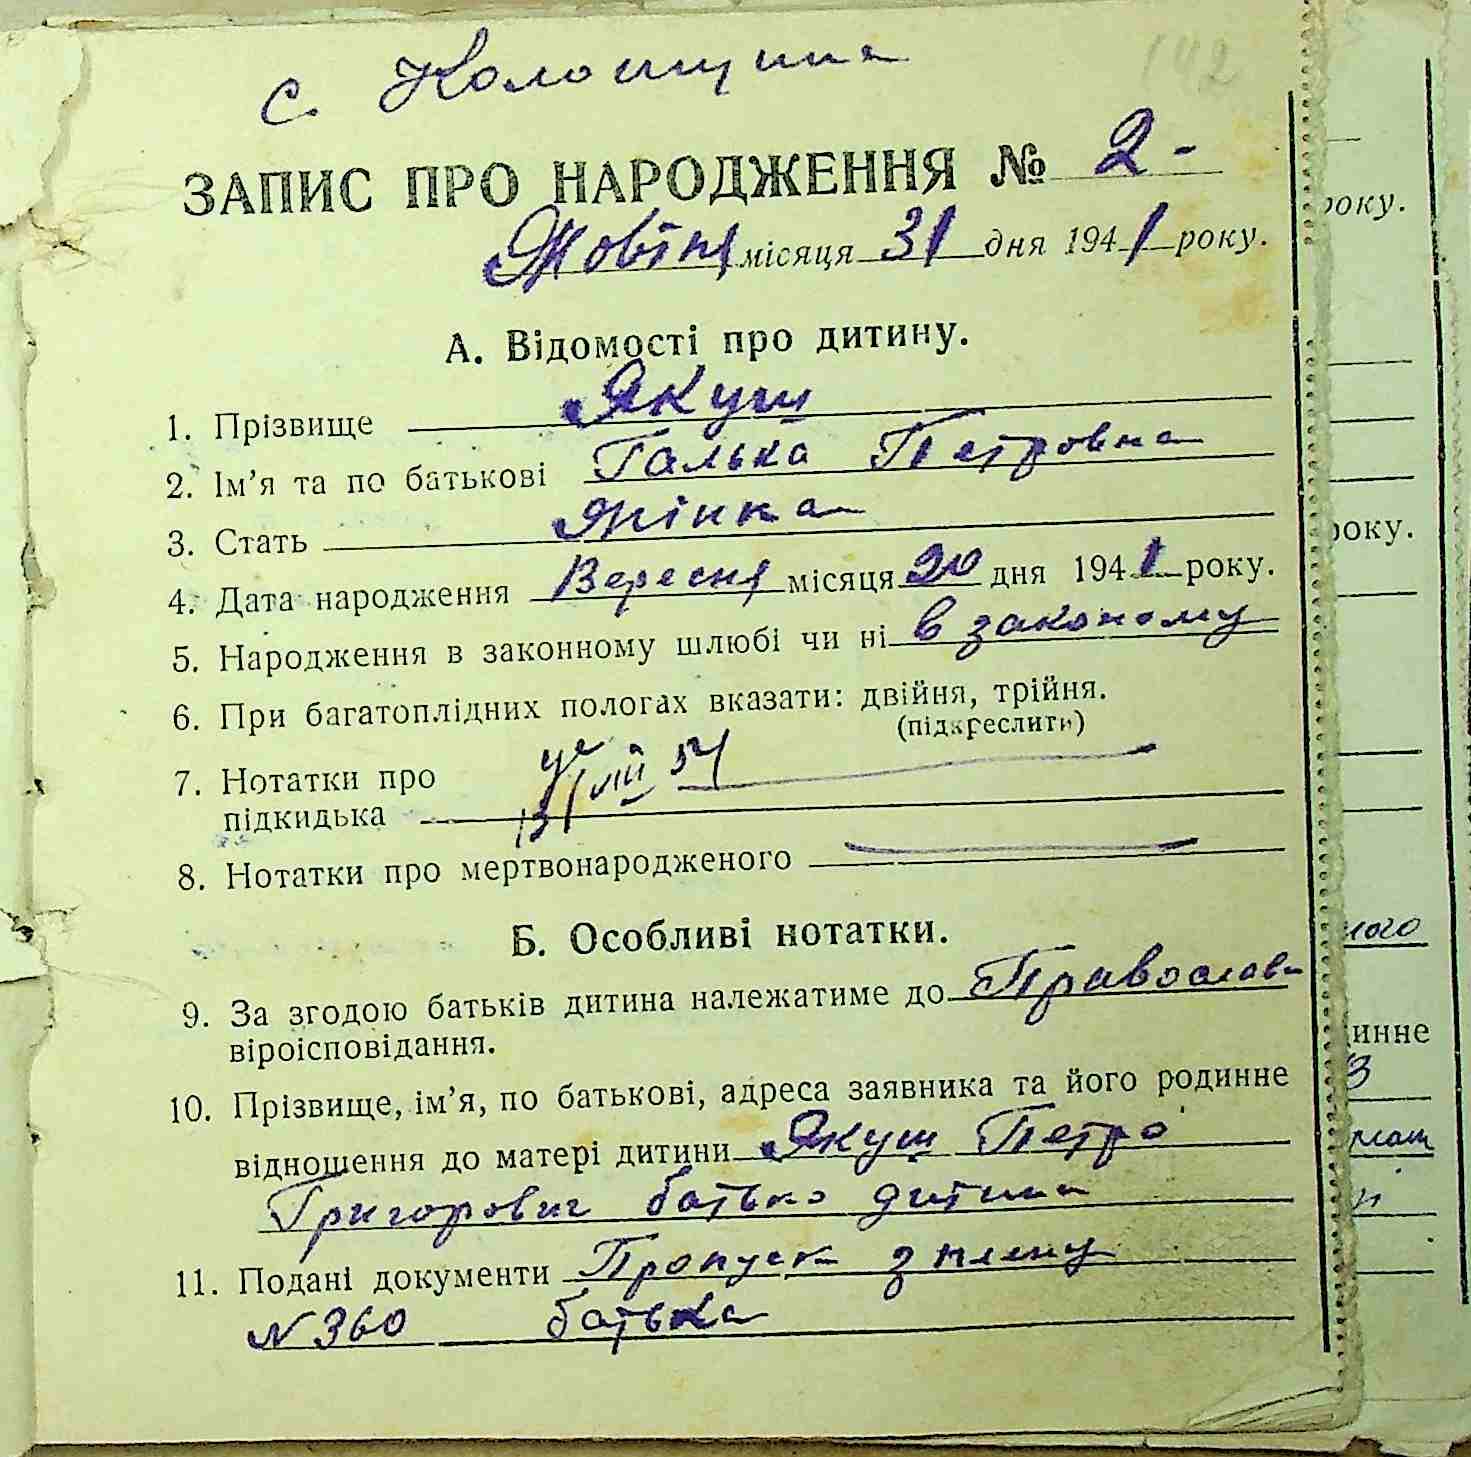 142
с. Колощина
ЗАПИС ПРО НАРОДЖЕННЯ № 2-
Жовтня місяця 31 дня 1941 року.
А. Відомості про дитину.
1. Прізвище Якуш
2. Ім'я та по батькові Галька Петровна
3. Стать Жінка
4. Дата народження Вересня місяця 20 дня 1941 року.
5. Народження в законному шлюбі чи ні в законому
6. При багатоплідних пологах вказати: двійня, трійня.
(підкреслити)
7. Нотатки про
підкидька 13/VIII 54
8. Нотатки про мертвонародженого
Б. Особливі нотатки.
9. За згодою батьків дитина належатиме до Православн
віроісповідання.
10. Прізвище, ім'я, по батькові, адреса заявника та його родинне
відношення до матері дитини Якуш Петро
Григорович батько дитини
11. Подані документи Пропуск з плену
N 360 батька
року.
року.
ного
инне